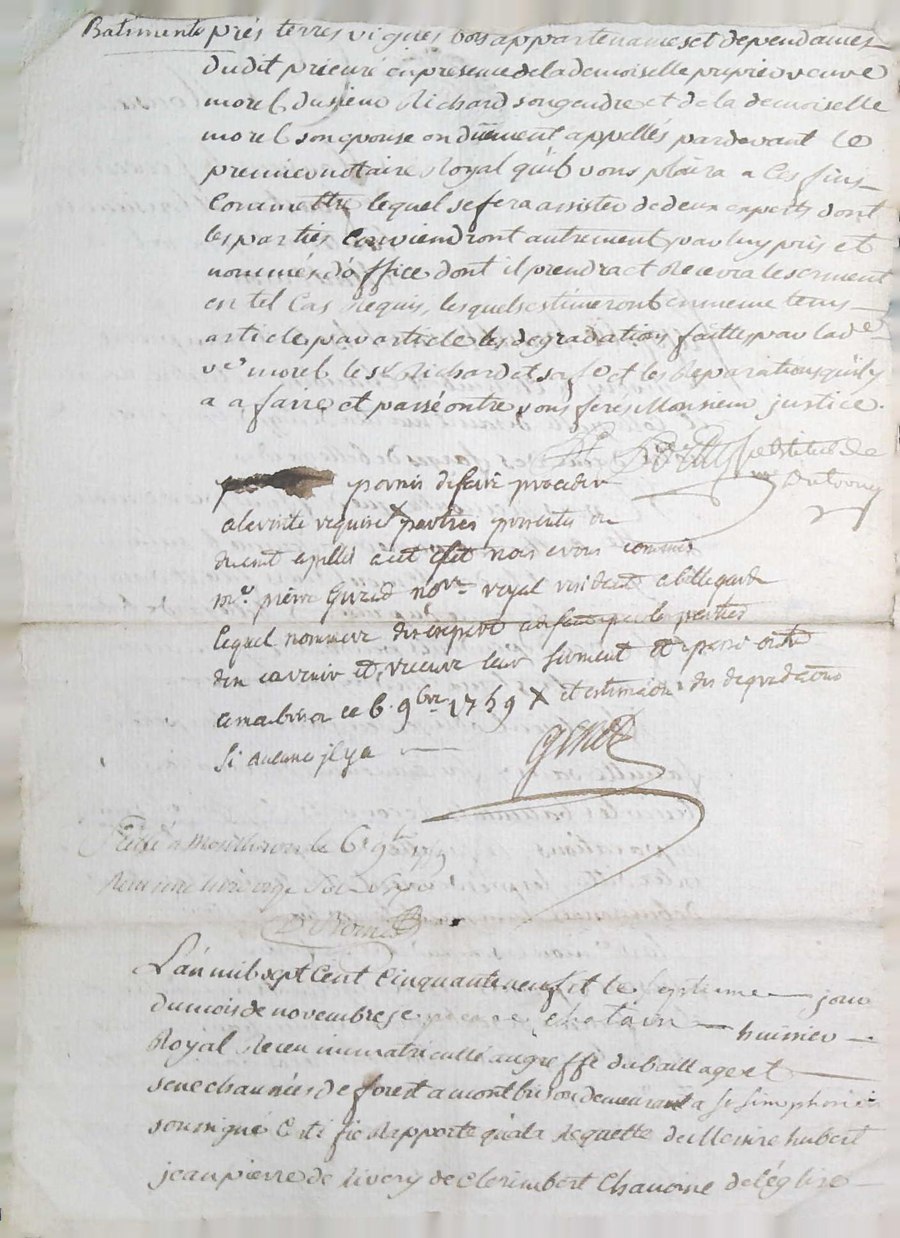 Batiments prés terres vignes bois appartenances et dependances
dudit prieuré en presence de la demoiselle prieure veuve
morel du sieur Richard son gendre et de la demoiselle
morel son epouse ou düement appellés pardevant le
premier notaire Royal qu'il vous plaira a ces fins
Commettre lequel se fera assister de deux experts dont
les parties Conviendront autrement par luy pris et
nommés d'office dont il prendra et Recevra le serment
en tel Cas Requis, lesquels estimeront en meme tems
article par article les degradations faittes par lad.e
v.e morel le s.r Richard et sa fe et les Reparations qu'il y
a a faire et passé outre vous ferés Monsieur justice.
permis de faire proceder
a la visite requise X parties presentes ou
duement apellés a cet effet nous avons commis
m.e pierre Girard no.re royal residant a bellegarde
lequel nommera des experts
den convenir et recevra leur serment et passé outre
a montbrison ce 6. 9bre 1759 X et estimation des degradations
si aucunes il y a
Scellé à Montbrison le 6 9bre 1759
L'an mil sept Cent Cinquante neuf et le septieme jour
du mois de novembre je huissier
Royal Receu immatricullé au greffe du bailliage et
senechaussées de forest a montbrison demeurant a St Simphorien
soussigné Certifie Rapporte qu'a la Requette de Messire hubert
jean pierre de Rivery de Clerimbert Chanoine de l'églize